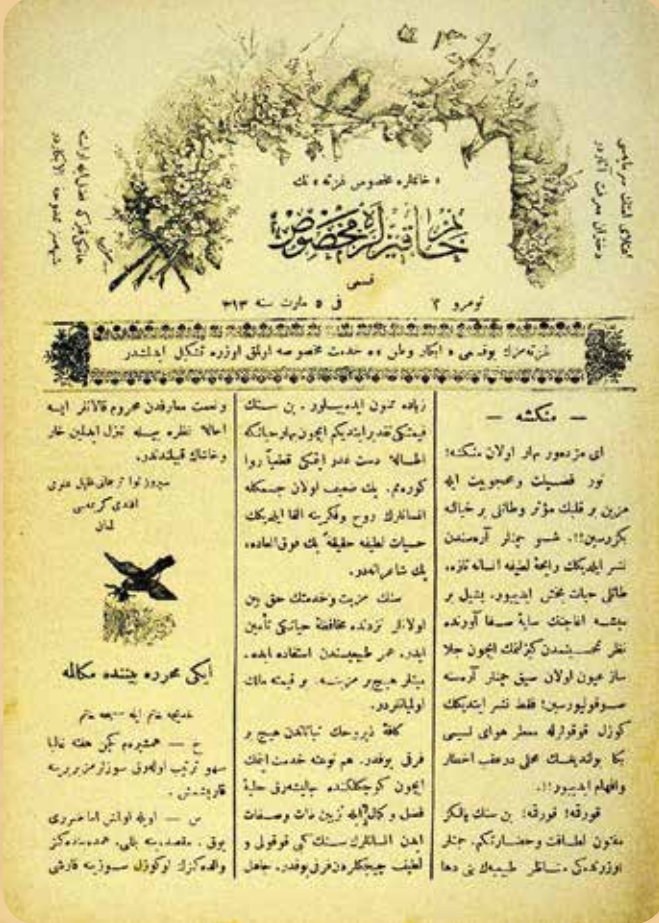 « خانملره مخصوص غزته » نك
خانم قيزلره مخصوص
قسمى
نومرو ٢
فى ٥ مارت سنه ٣١٣
غزته‌مزك بو قسمى « ابكار وطن » ه خدمت مخصوصه اولمق اوزره تشكيل ايدلمشدر
— منكشه —
اى مژده‌ور بهار اولان منكشه!
نور فضيلت ومحجوبيت ايله
حزين بر قلبك مؤثر وطاتلى بر خيالنه
بكزرسين!!. شو چنلر آره‌سندن
نشر ايلديكك رايحهٔ لطيفه انسانه تازه،
طاتلى حيات بخش ايدييور. يشيل بر
ميشه اغاجنك سايهٔ صفا آورنده
نظر تجسسدن كيزلنمك ايچون جلا
ساز عيون اولان صيق چنلر آره‌سنه
صوقولييورسين! فقط نشر ايتديكك
كوزل قوقولرله معطر هواى نسيمى
بكا بولنديغك محلى درعقب اخطار
وافهام ايدييور!!.
قورقمه! قورقمه! بن سنك يالكز
مفتون لطافت وحضارتكم. چنلر
اوزرنده‌كى مناظر طبيعيه‌ك بنى دها
زياده ممنون ايده‌بيلور. بن سنك
قيمتكى تقدير ايتديكم ايچون بهار حياتكه
اطاله دست عدو ايتمكى قطعياً روا
كورمم. پك ضعيف اولان جسمكله
انسانلرك روح وفكرينه القا ايلديكك
حسيات لطيفه حقيقةً پك فوق العاده،
پك شاعرانه‌در.
سنك مزيت وخدمتك حق بين
اولانلر نزدنده محافظهٔ حياتكى تأمين
ايدر. عمر طبيعيسندن استفاده ايده‌
ميانلر هيچ بر مزيته، بر قيمته مالك
اولميانلردر.
كافهٔ ذيروحك نباتاتدن هيچ بر
فرقى يوقدر. هم نوعنه خدمت ايتمك
ايچون كوچكلكنده چاليشه‌رق حليهٔ
فضل و كمال ايله تزيين ذات وصفات
ايدن انسانلرك سنك كبى قوقولى و
لطيف چيچكلردن فرقى يوقدر. جاهل
ونعمت معارفدن محروم قالانلر ايسه
احالهٔ نظره بيله تنزل ايدلمين خار
وخاشاك قبيلندندر.
افندى كريمه‌سى
ايكى محرره بيننده مكالمه
خديجه خانم ايله سميحه خانم
خ — همشيره‌م كچن هفته غالبا
سهو ترتيب اوله‌رق سوزلرمز بربرينه
قاريشمش.
س — اويله اولمش اما ضررى
يوق. مقصد ينه بللى.
والده‌كزك او كوزل سوزينه قارشى